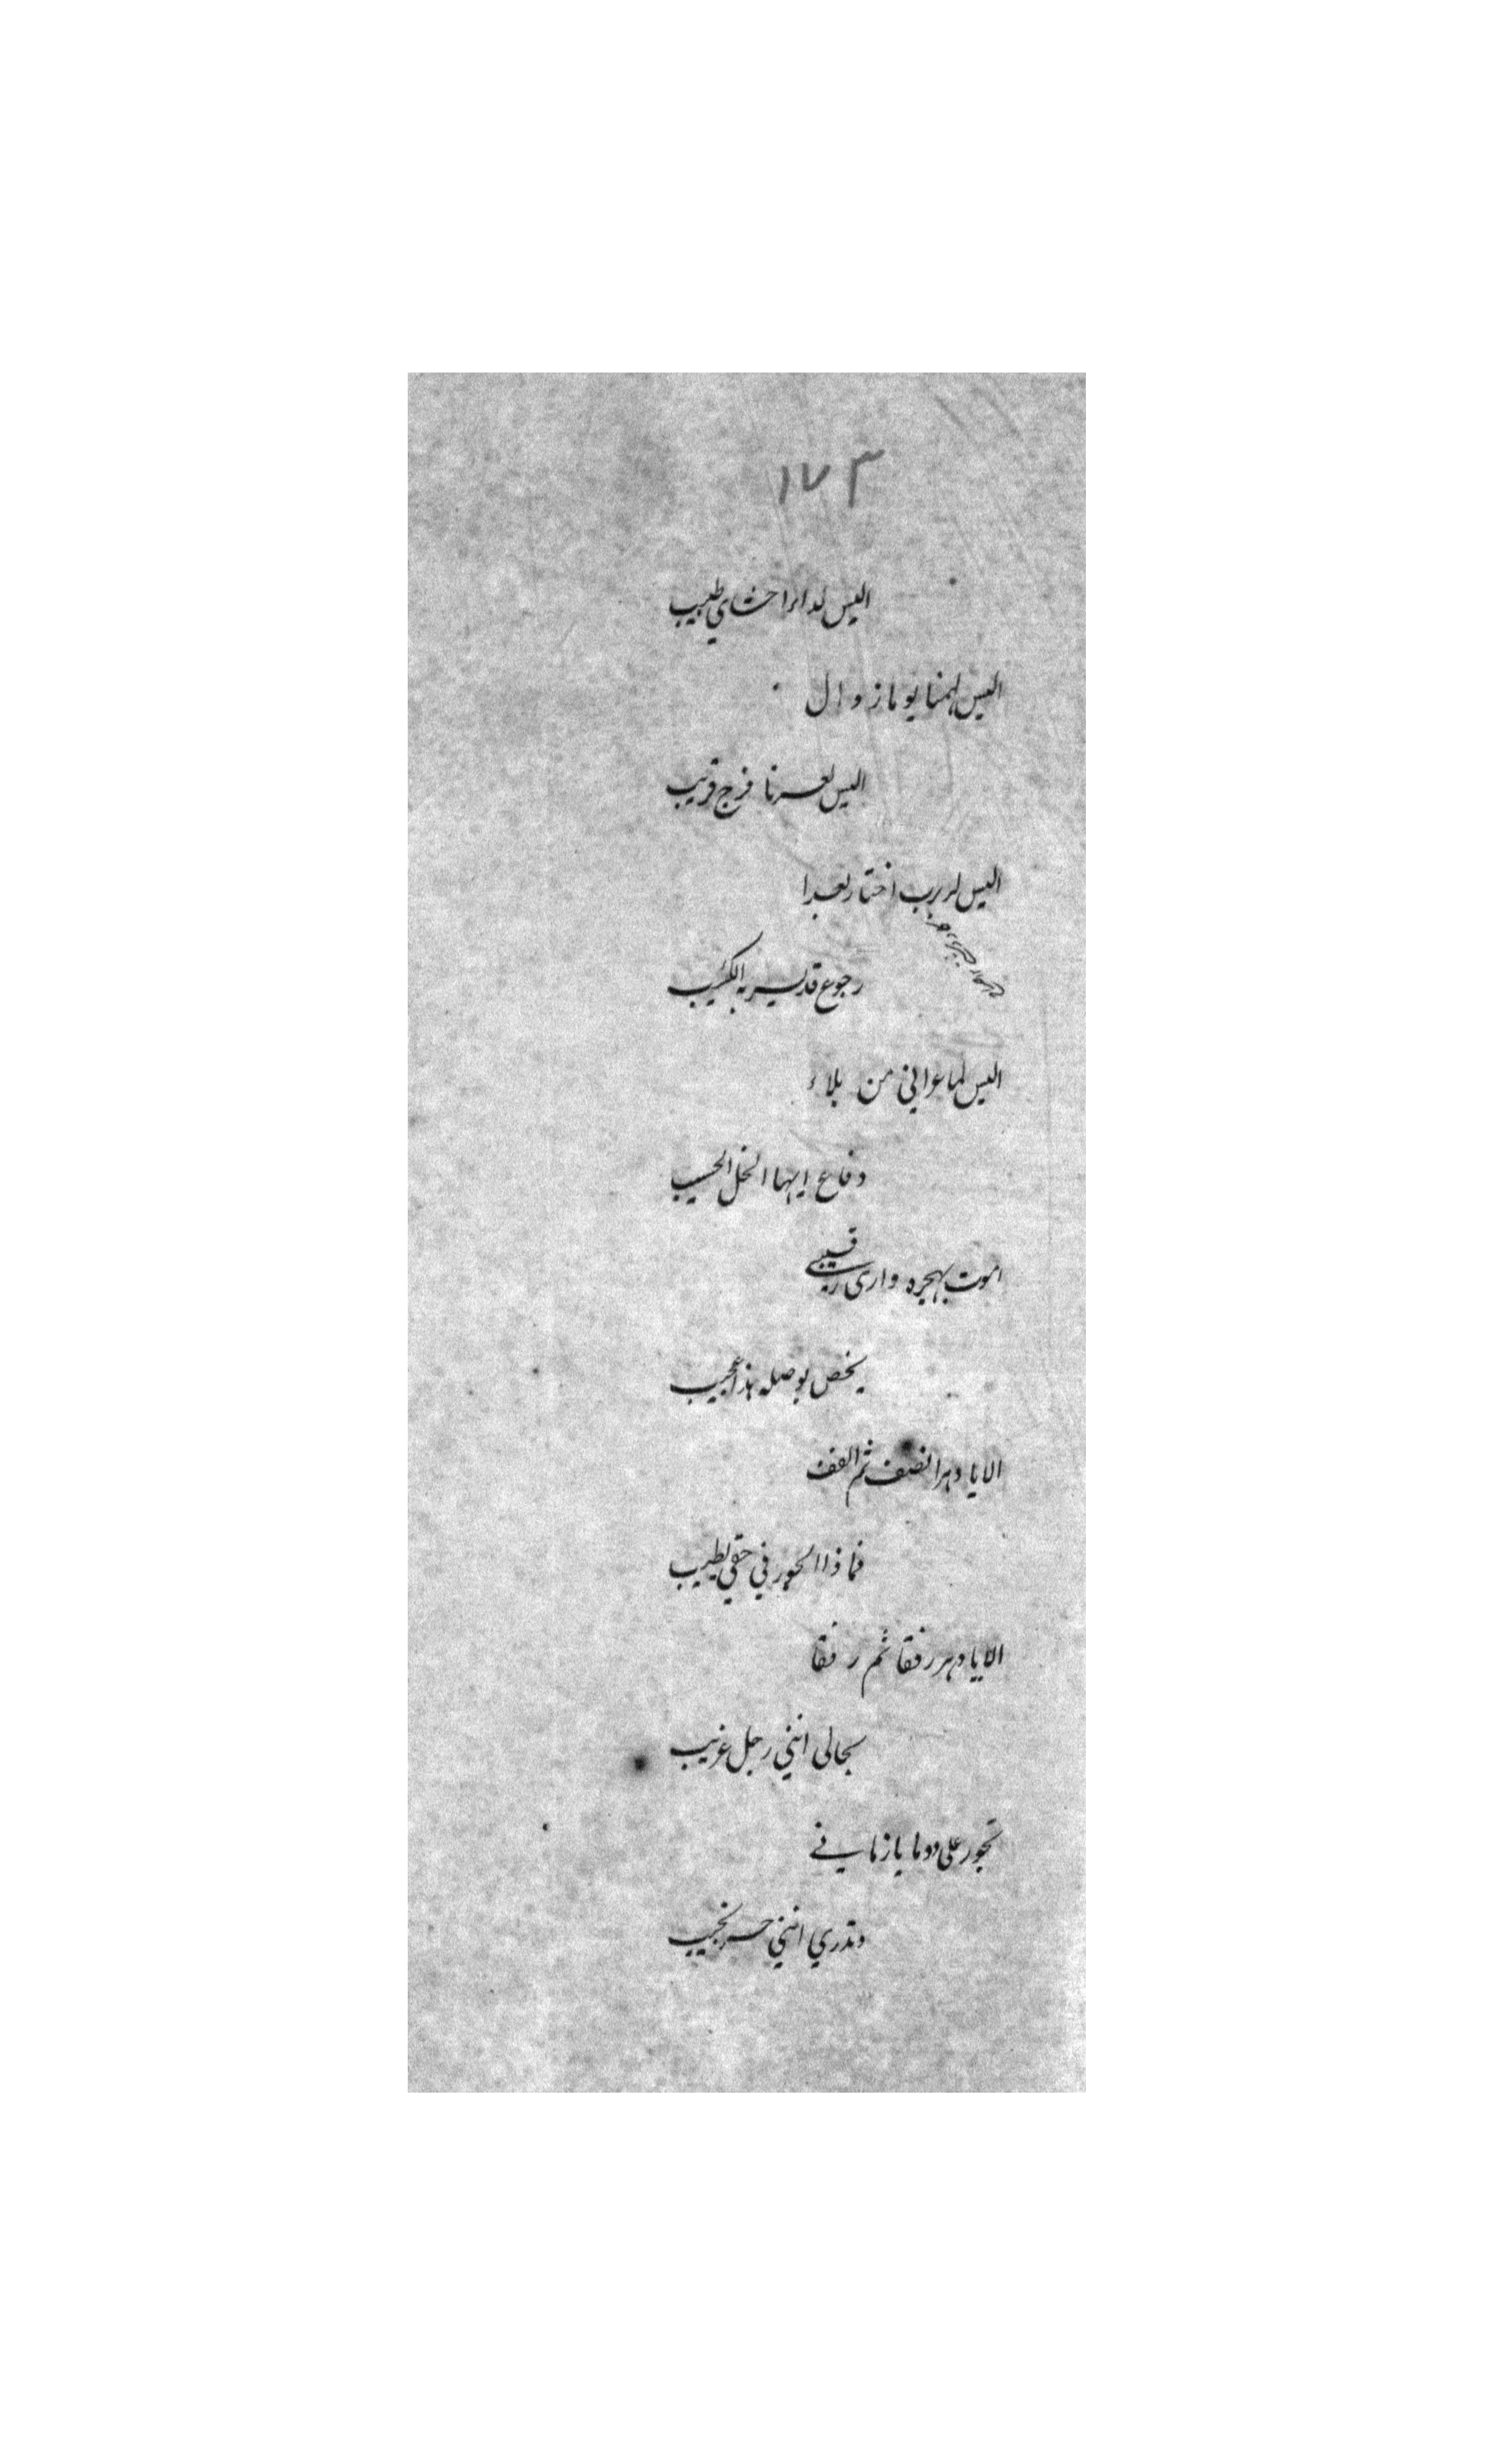 ١٧٣
اليس لداء احشاي طبيب
اليس لهمنا يوما زوال
اليس لعسرنا فرج قريب
اليس لربرب اختار بعدا
رجوع قد يسر به الكئيب
اليس لما عراني من بلاء
دفاع ايها الخل الحسيب
اموت بهجره وارى رقيبي
يخص بوصله هذا عجيب
الا يا دهر انصف ثم الفف
فماذا الجور في حقي يطيب
الا يا دهر رفقا ثم رفقا
بحالى انني رجل غريب
تجور على دوما يا زماني
وتدري انني حر نجيب